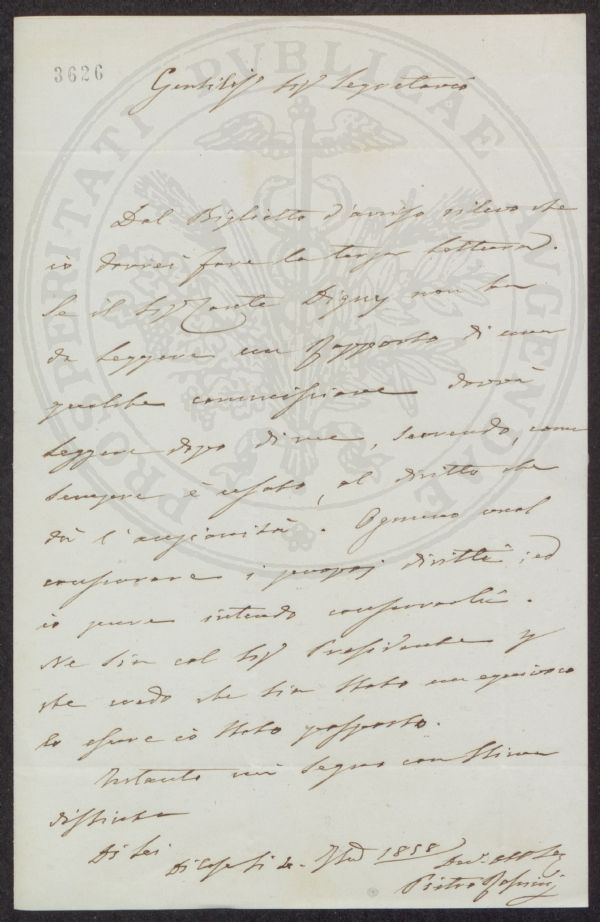 3626
PROSPERITATI PUBLICAE AUGENDAE
Gentilis.º Sig.r Segretario
Dal Biglietto d'avviso rilevo che
io dovrei fare la terza lettura.
Se il Sig.r Conte Digny non ha
da leggere un Rapporto di una
qualche commissione dovrà
leggere dopo di me, secondo, come
sempre è usato, al diritto che
dà l'anzianità. Ognuno vuol
conservare i propri diritti, ed
io pure intendo conservarli.
Ne dia col Sig.r Presidente
che credo che sia stato un equivoco
lo essere io stato posposto.
Intanto mi segno con stima
distinta
Di Lei
Di Casa li 1858
Pietro